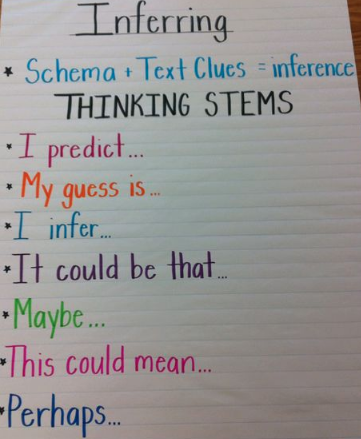 Inferring
* Schema + Text Clues = inference
THINKING STEMS
* I predict...
* My guess is...
* I infer...
* It could be that...
* Maybe...
* This could mean...
* Perhaps...